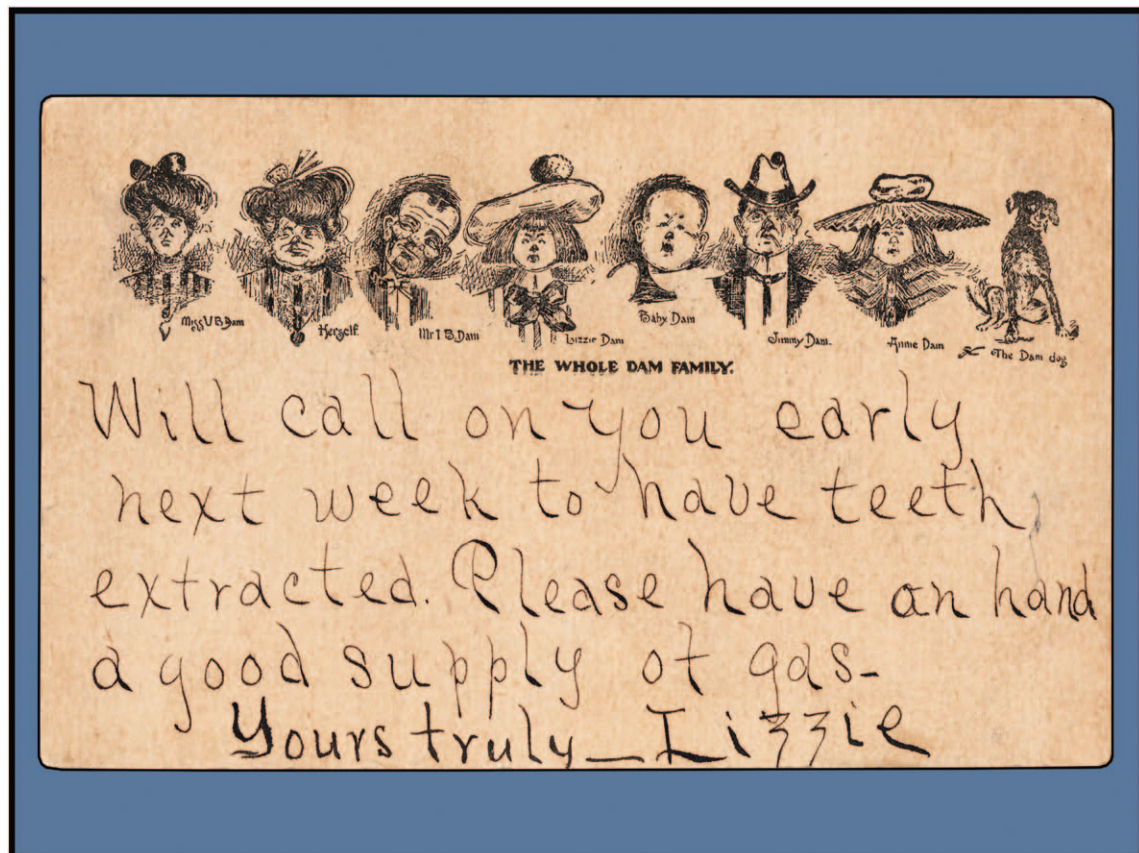 Miss U B Dam
Herself
Mr I B Dam
Lizzie Dam
Baby Dam
Jimmy Dam.
Annie Dam
The Dam dog
THE WHOLE DAM FAMILY.
Will call on you early
next week to have teeth
extracted. Please have on hand
a good supply of gas-
Yours truly_ Lizzie